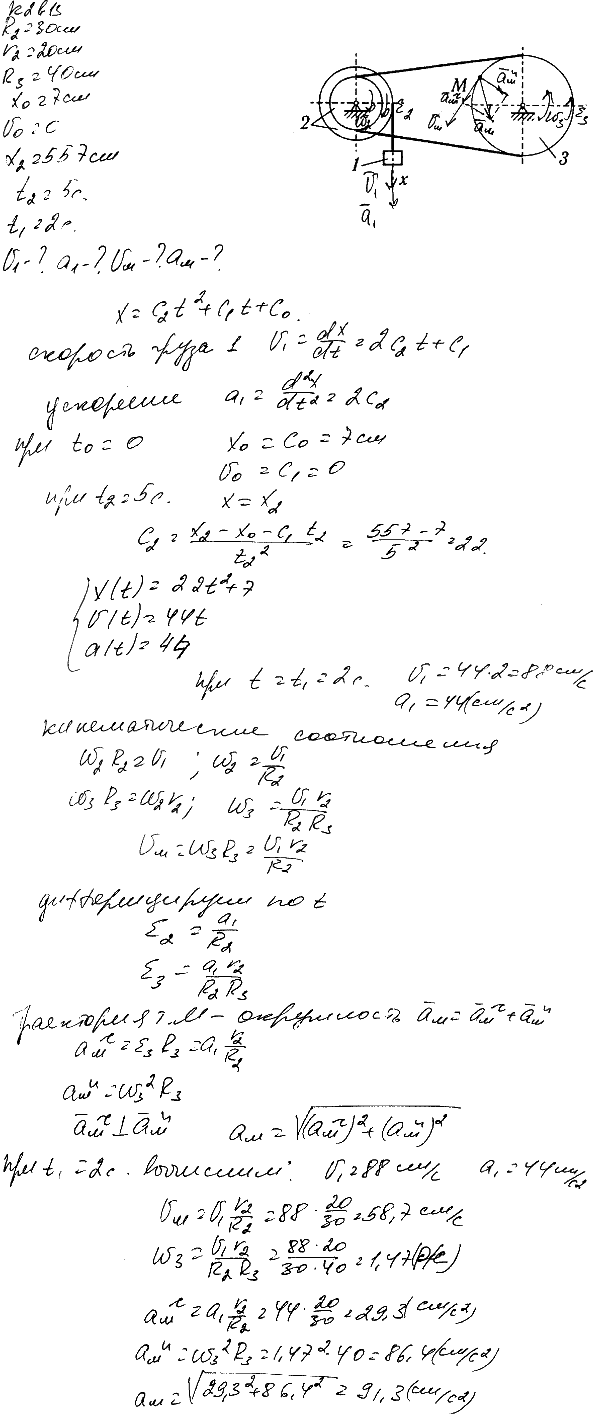 к2в13
R₂=30см
r₂=20см
R₃=40см
x₀=7см
v₀=0
x₂=557см
t₂=5с.
t₁=2с.
v₁-? a₁-? vм-? aм-?
2
1
3
M
x
v̄₁
ā₁
ω₂
ε₂
ω₃
ε₃
v̄м
āмᵗ
āмⁿ
āм
x=C₂t²+C₁t+C₀.
скорость груза 1 v₁=dx/dt=2C₂t+C₁
ускорение a₁=d²x/dt²=2C₂
при t₀=0 x₀=C₀=7см
v₀=C₁=0
при t₂=5с. x=x₂
C₂=(x₂-x₀-C₁t₂)/t₂²=(557-7)/5²=22.
x(t)=22t²+7
v(t)=44t
a(t)=44
при t=t₁=2с. v₁=44·2=88см/с
a₁=44(см/с²)
кинематические соотношения
ω₂R₂=v₁; ω₂=v₁/R₂
ω₃R₃=ω₂r₂; ω₃=v₁r₂/R₂R₃
vм=ω₃R₃=v₁r₂/R₂
дифференцируем по t
ε₂=a₁/R₂
ε₃=a₁r₂/R₂R₃
траектория т. М - окружность āм=āмᵗ+āмⁿ
aмᵗ=ε₃R₃=a₁ r₂/R₂
aмⁿ=ω₃²R₃
āмᵗ⊥āмⁿ aм=√((aмᵗ)²+(aмⁿ)²)
при t₁=2с. вычислим: v₁=88 см/с a₁=44 см/с²
vм=v₁ r₂/R₂=88·20/30=58,7 см/с
ω₃=v₁r₂/R₂R₃=88·20/30·40=1,47
aмᵗ=a₁ r₂/R₂=44·20/30=29,3(см/с²)
aмⁿ=ω₃²R₃=1,47²·40=86,4(см/с²)
aм=√(29,3²+86,4²)=91,3(см/с²)